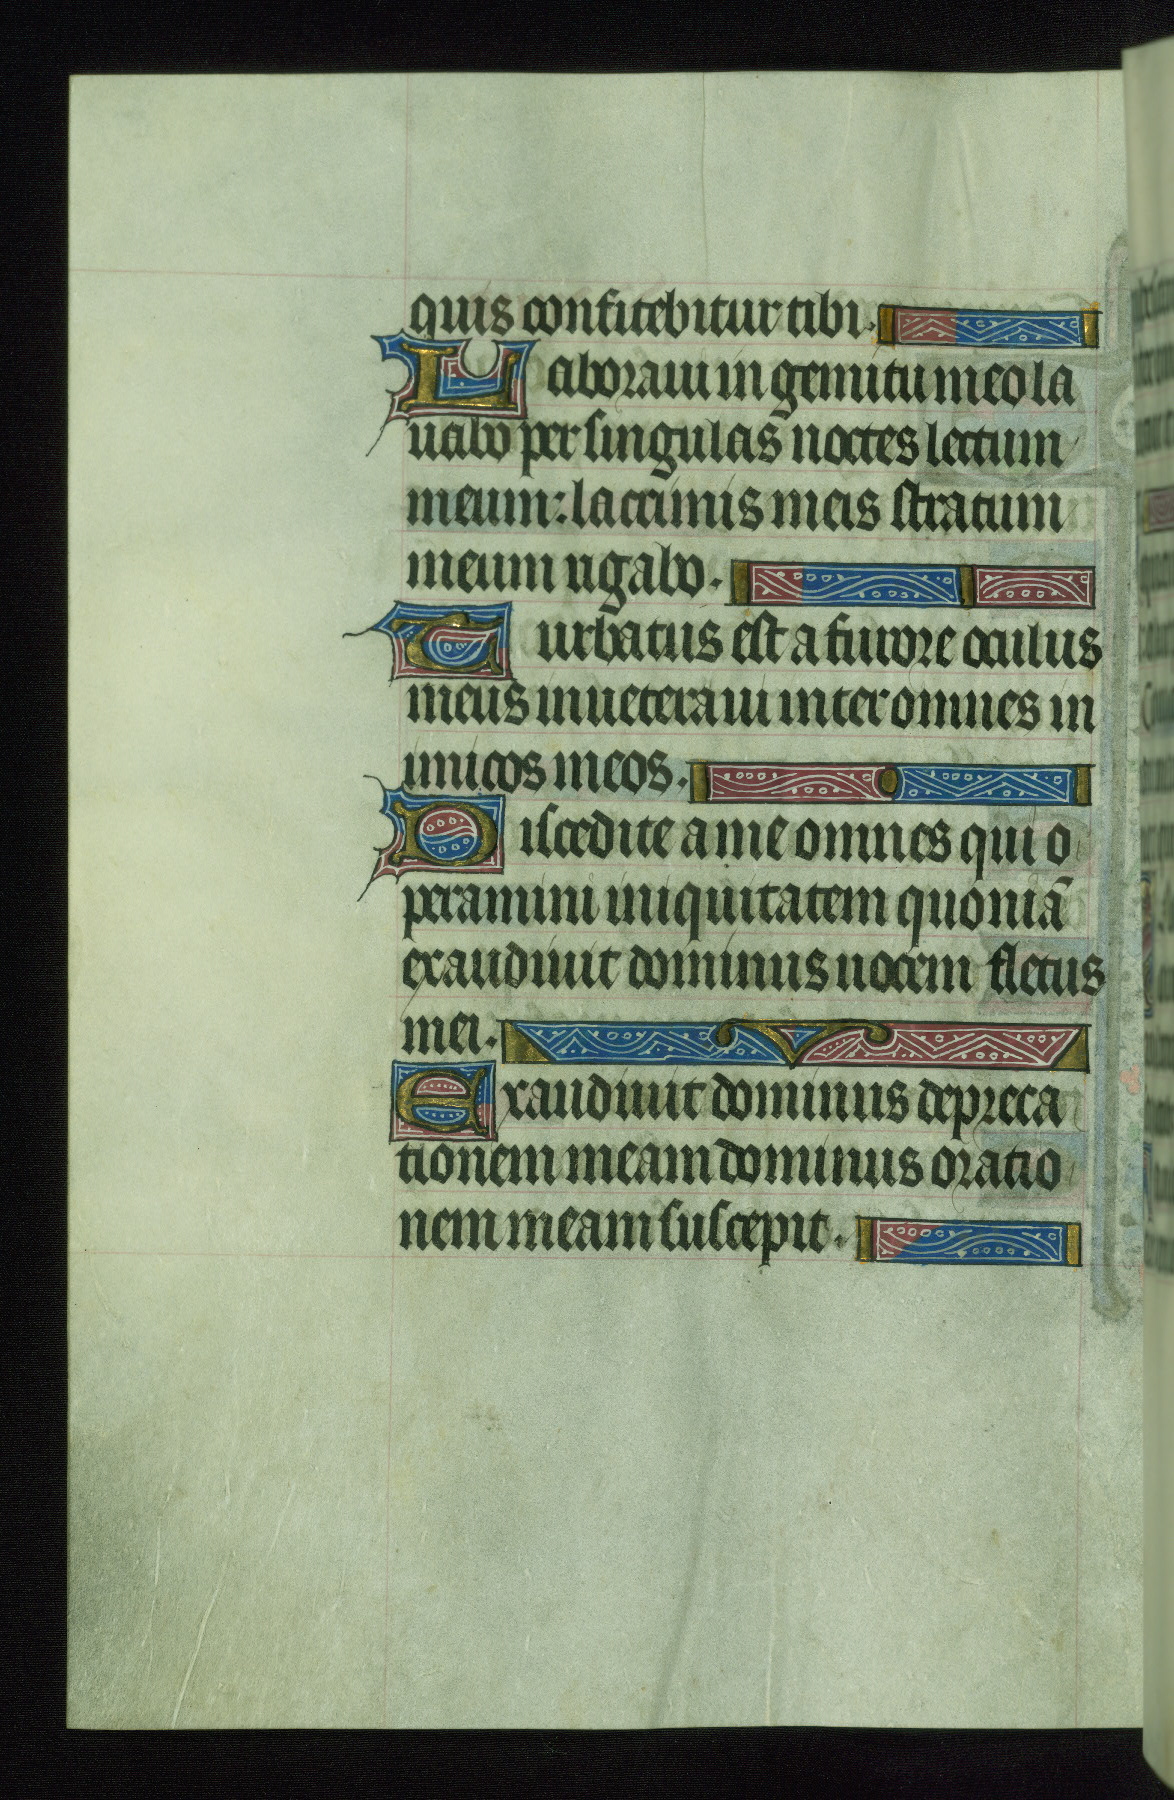 quis confitebitur tibi.
Laboraui in gemitu meo la
uabo per singulas noctes lectum
meum: lacrimis meis stratum
meum rigabo.
Turbatus est a furore oculus
meus inueteraui inter omnes in
imicos meos.
Discedite a me omnes qui o
peramini iniquitatem quoniā
exaudiuit dominus uocem fletus
mei.
Exaudiuit dominus depreca
tionem meam dominus oratio
nem meam suscepit.